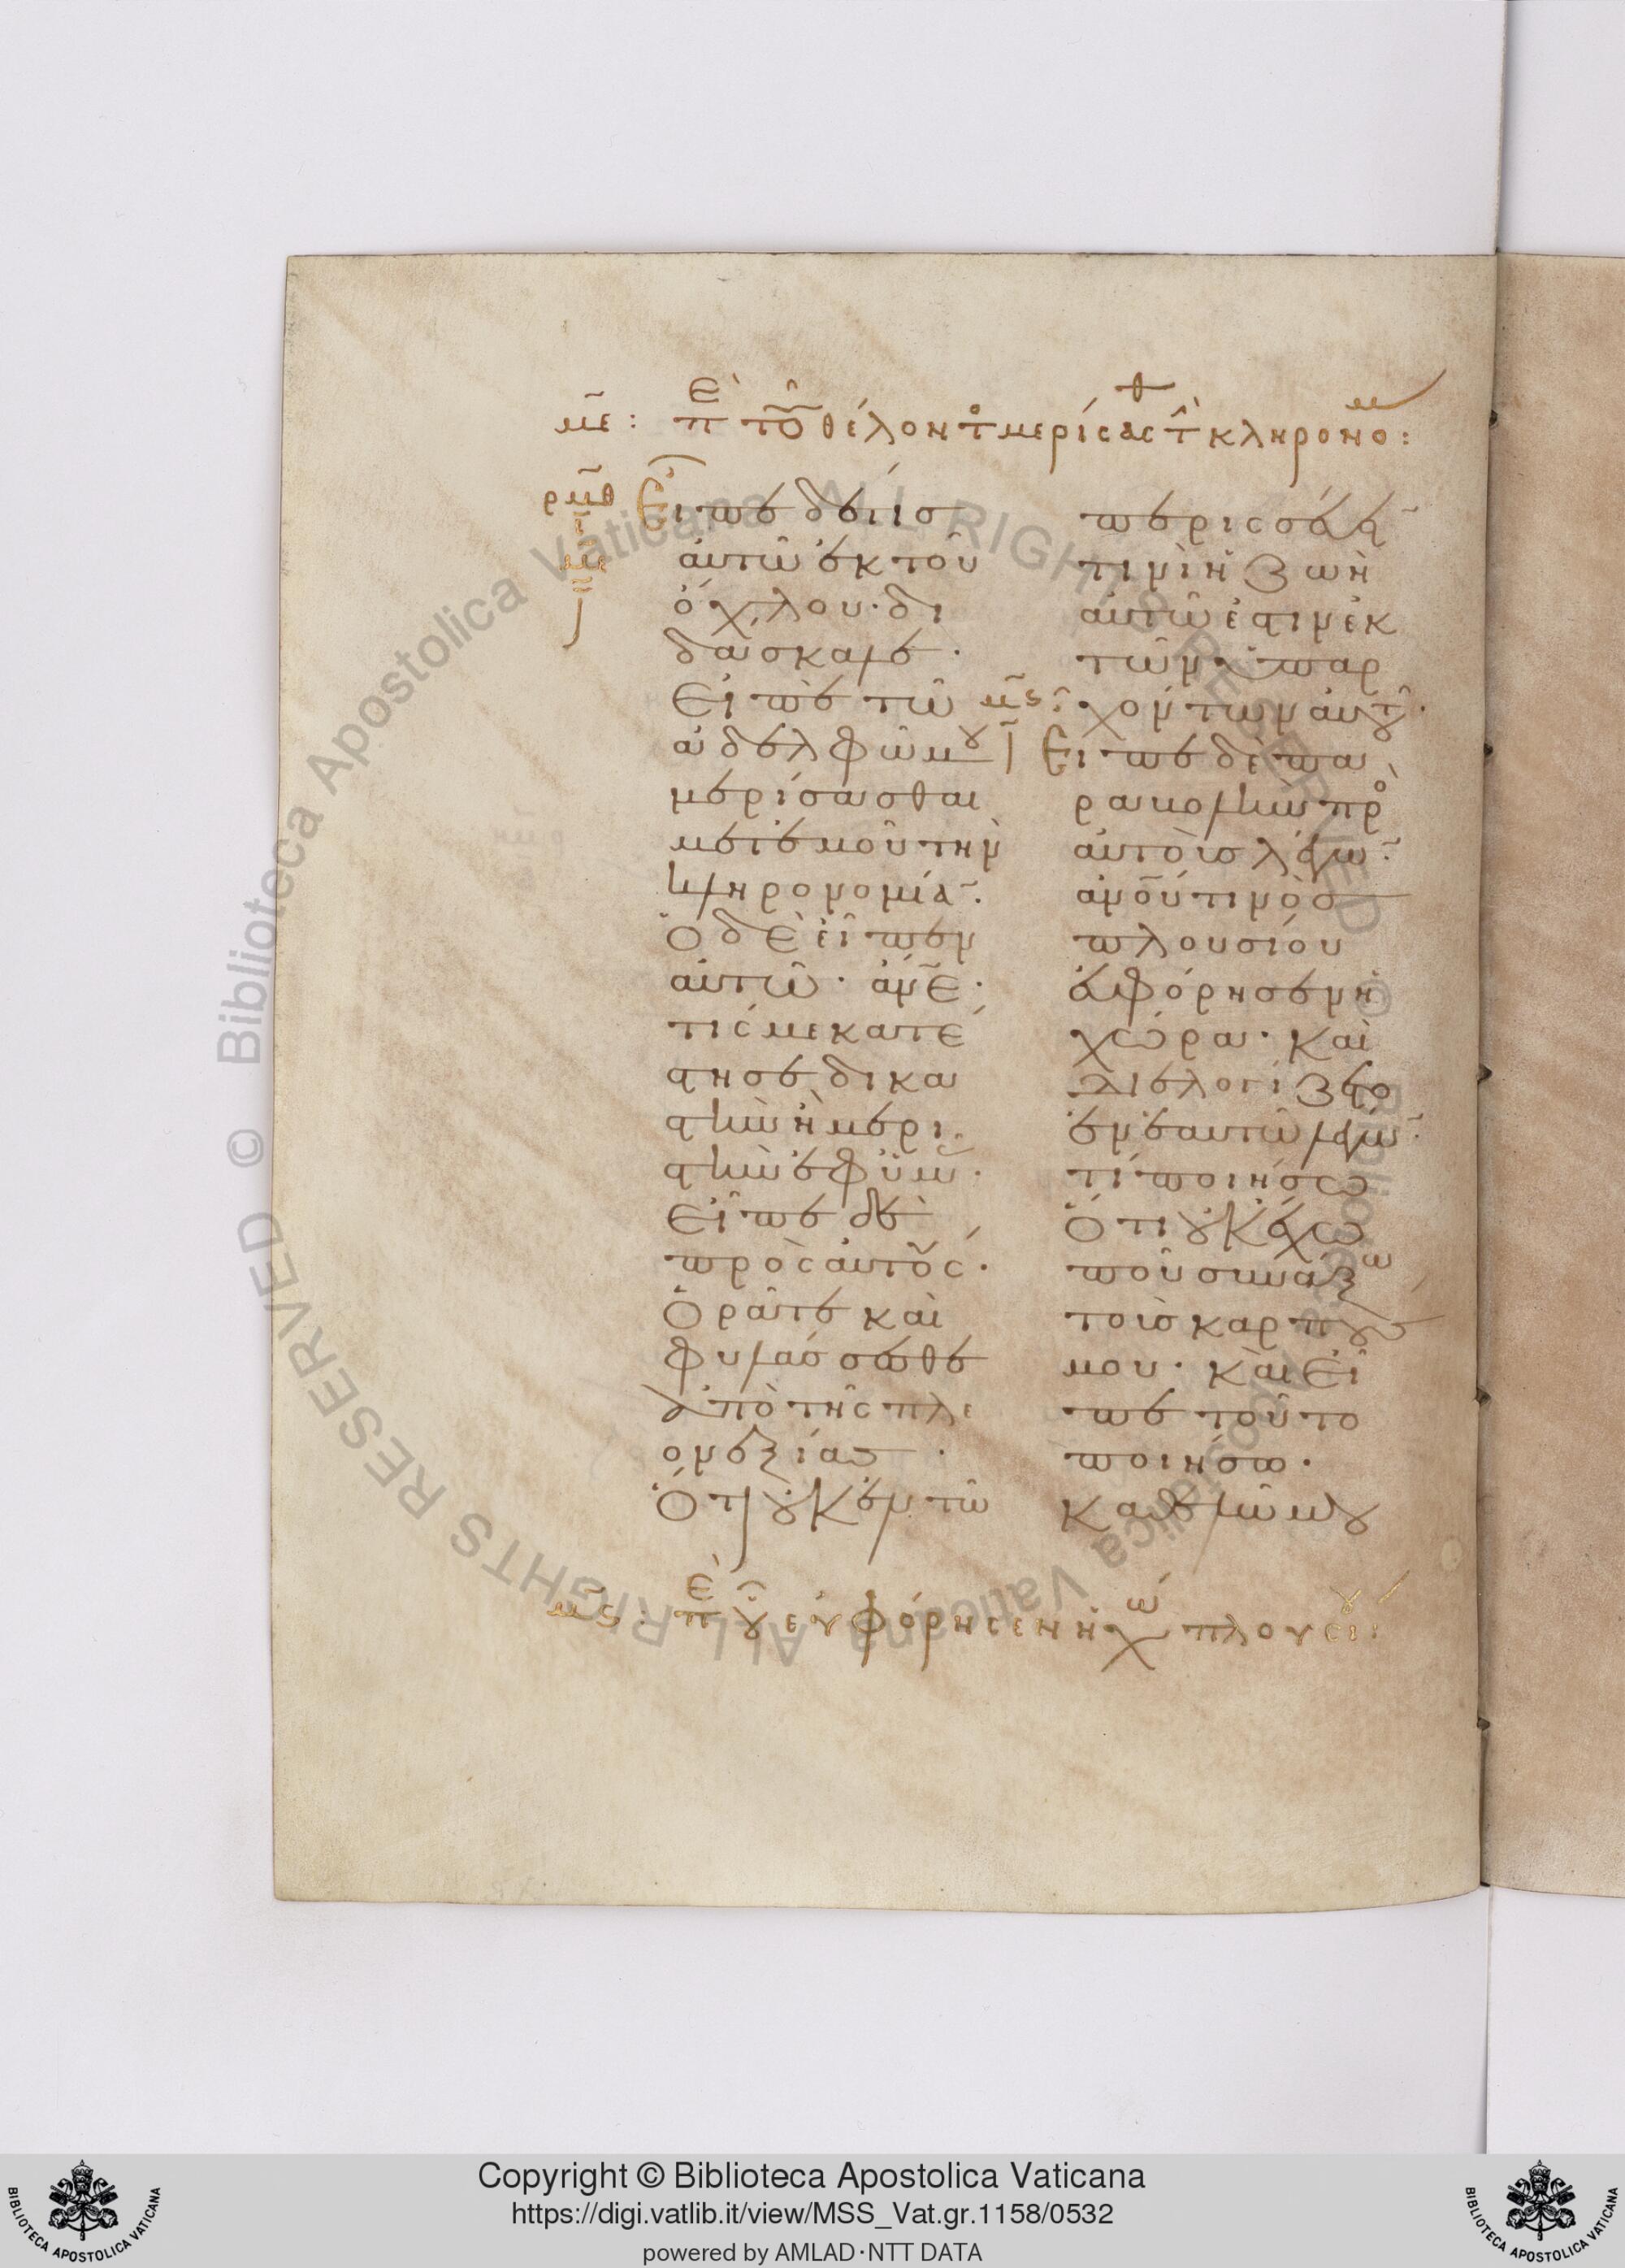 με: Ἐπὶ τοῦ θέλοντος μερίσασθαι τὴν κληρονο:
ρμθ
Εἶπε δέ τισ
αὐτῶ ἐκ τοῦ
ὄχλου· δι
δάσκαλε·
Εἰπὲ τῶ
ἀδελφῶ μου
μερίσασθαι
μετ' ἐμοῦ τὴν
κληρονομίαν·
Ὁ δὲ εἶπεν
αὐτῶ· ἄνε·
τίς με κατέ
στησε δικα
στὴν ἢ μερι
στὴν ἐφ' ὑμᾶς·
Εἶπε δὲ
πρὸς αὐτούς·
Ὁρᾶτε καὶ
φυλάσσεσθε
ἀπὸ τῆς πλε
ονεξίας·
Ὅτι οὐκ ἐν τῶ
περισσεύειν
τινὶ ἡ ζωὴ
αὐτῶ ἐστιν ἐκ
τῶν ὑπαρ
μς: χόντων αὐτοῦ·
Εἶπε δὲ πα
ραβολὴν πρὸς
αὐτοὺσ λέγων·
ἀνοῦ τινὸσ
πλουσίου
εὐφόρησεν ἡ
χώρα· καὶ
διελογίζετο
ἐν ἑαυτῶ λέγων·
τί ποιήσω
Ὅτι οὐκ ἔχω
ποῦ συνάξω
τοὺσ καρπούς
μου· καὶ εἶ
πε τοῦτο
ποιήσω·
Καθελῶ μου
μς: Ἐπὶ οὗ εὐφόρησεν ἡ χώ πλουσίου:
Copyright © Biblioteca Apostolica Vaticana
https://digi.vatlib.it/view/MSS_Vat.gr.1158/0532
powered by AMLAD·NTT DATA